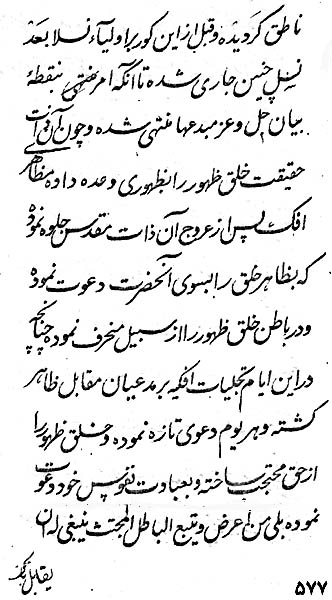 ناطق گردیده و قبل از این کور بر اولیآء نسلا بعد
نسل چنین جاری شده تا آنکه امر منتهی بنقطهٔ
بیان جل و عز مبدعها منتهی شده و چون آن ذات
حقیقت خلق ظهور را بظهوری وعده داده مظاهر
افک پس از عروج آن ذات مقدس جلوه نموده
که بظاهر خلق را بسوی آنحضرت دعوت نموده
و در باطن خلق ظهور را از سبیل منحرف نموده چنانچه
در این ایام تجلیات افکیه بر مدعیان مقابل ظاهر
گشته و هر یوم دعوی تازه نموده و خلق ظهور را
از حق محتجب ساخته و بعبادت نفوس خود دعوت
نموده بلی من اعرض و یتبع الباطل المجتث ینبغی له ان
یقابل بک
۵۷۷